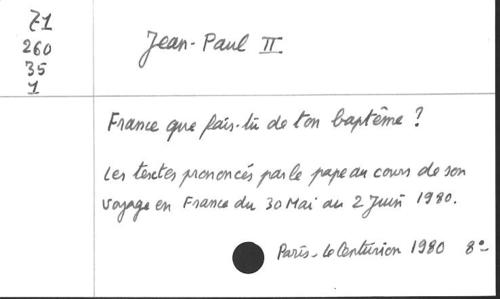 Z1
260
35
1
Jean-Paul II
France que fais-tu de ton baptême ?
Les textes prononcés par le pape au cours de son
voyage en France du 30 Mai au 2 Juin 1980.
Paris - Le Centurion 1980 8°